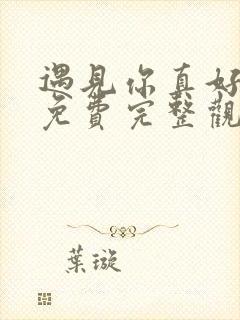 遇見你真好
免費完整觀
葉璇